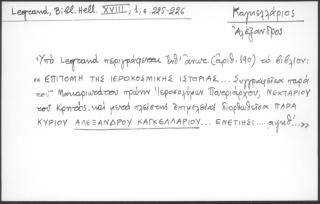 Legrand, Bibl. Hell. XVIII, 1, σ. 225-226
Καγκελλάριος
Ἀλέξανδρος
Ὑπὸ Legrand περιγράφεται ἐνθ' ἄνωτ. (ἀριθ. 190) τὸ βιβλίον:
«ΕΠΙΤΟΜΗ ΤΗΣ ΙΕΡΟΚΟΣΜΙΚΗΣ ΙΣΤΟΡΙΑΣ.... Συγγραφεῖσα παρὰ
τοῦ Μακαριωτάτου πρώην Ἱεροσολύμων Πατριάρχου, ΝΕΚΤΑΡΙΟΥ
τοῦ Κρητὸς. καὶ μετὰ πλείστης ἐπιμελείας διορθωθεῖσα ΠΑΡΑ
ΚΥΡΙΟΥ ΑΛΕΞΑΝΔΡΟΥ ΚΑΓΚΕΛΛΑΡΙΟΥ... ΕΝΕΤΙΗΣΙ....